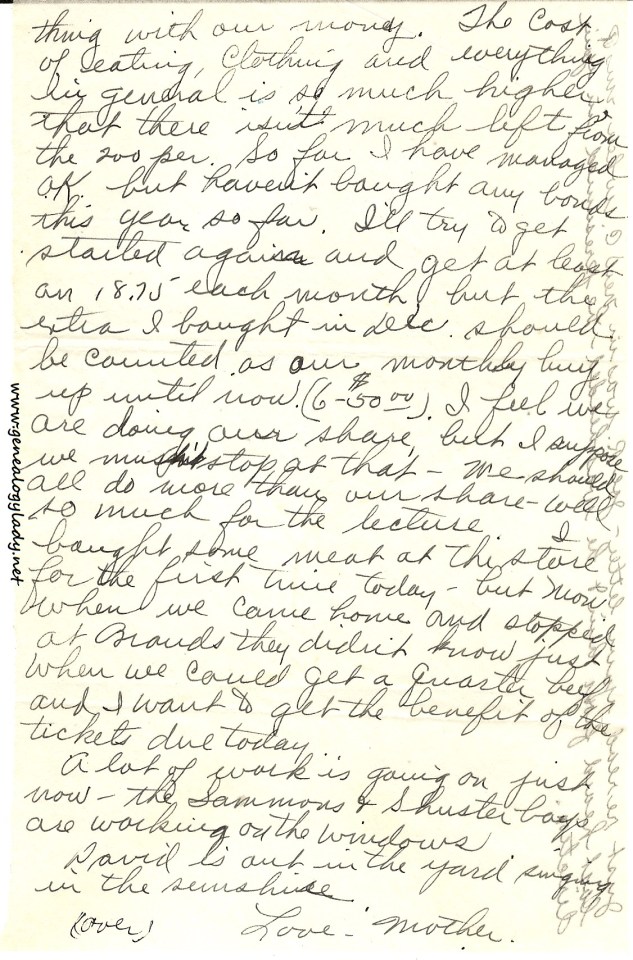 thing with our money. The cost
of eating, clothing and everything
in general is so much higher,
that there isn't much left from
the 200 per. So far I have managed
OK but haven't bought any bonds
this year so far. I'll try to get
started again and get at least
an 18.75 each month, but the
extra I bought in Dec. should
be counted as our monthly buy
up until now. (6-$50.00). I feel we
are doing our share, but I suppose
we mustn't stop at that - We should
all do more than our share - well
so much for the lecture. I
bought some meat at this store
for the first time today - but now
when we came home and stopped
at Brands they didn't know just
when we could get a quarter beef
and I want to get the benefit of the
tickets due today
A lot of work is going on just
now - the Sammons & Shuster boys
are working on the windows
David is out in the yard singing
in the sunshine
(over) Love - Mother.
www.genealogylady.net